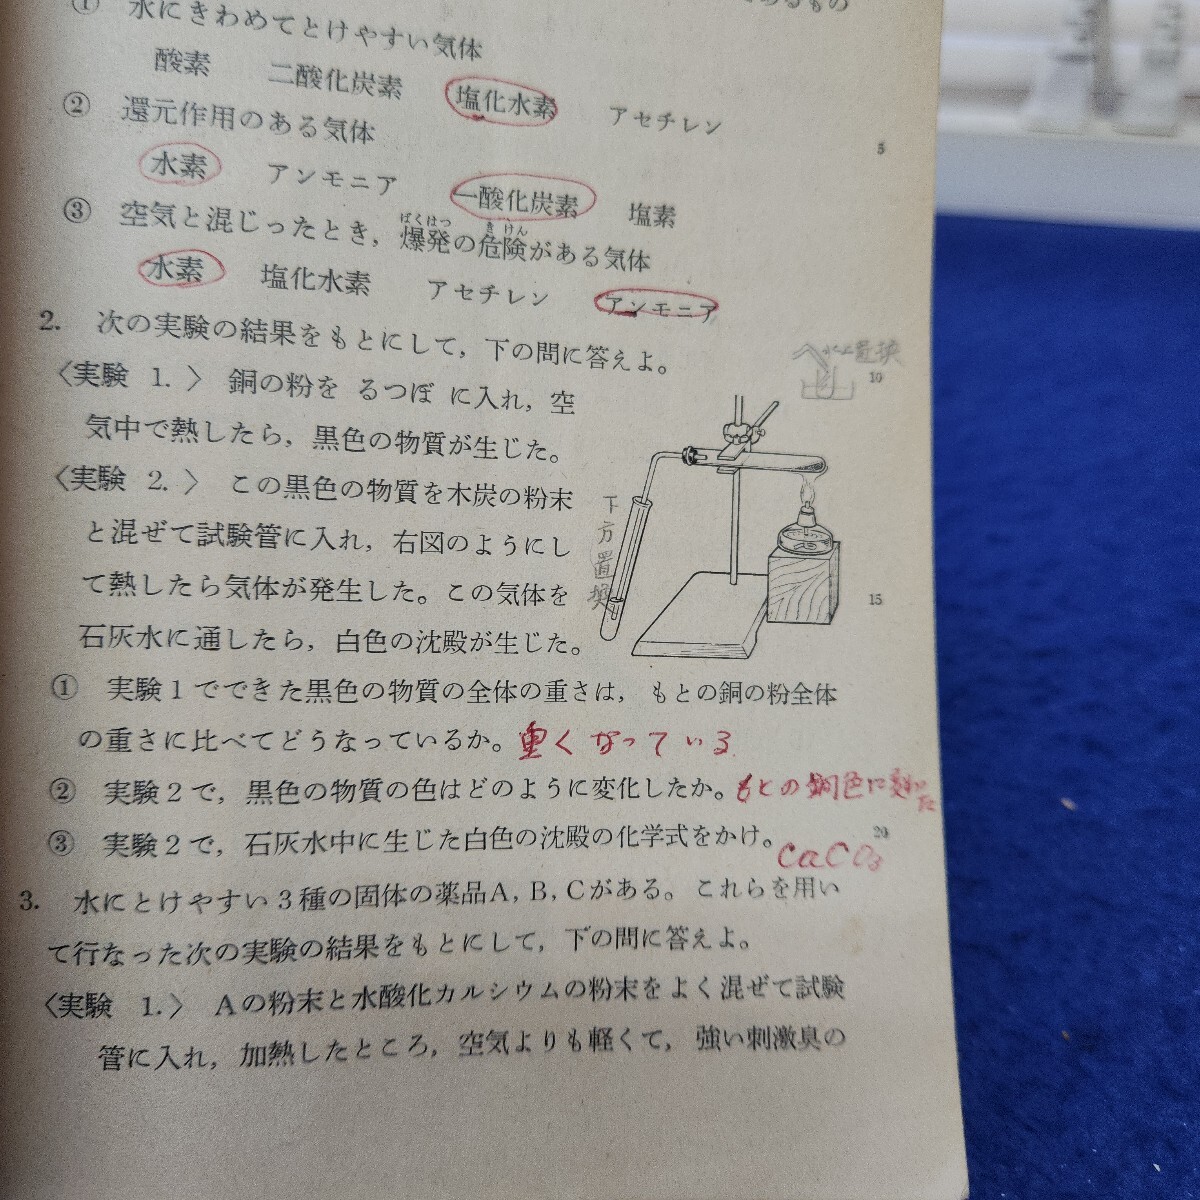 ① 水にきわめてとけやすい気体
酸素 二酸化炭素 塩化水素 アセチレン
② 還元作用のある気体
5
水素 アンモニア 一酸化炭素 塩素
③ 空気と混じったとき，爆発の危険がある気体
ばくはつ きけん
水素 塩化水素 アセチレン アンモニア
2. 次の実験の結果をもとにして，下の問に答えよ。
水上置換
10
〈実験 1.〉 銅の粉を るつぼ に入れ，空
気中で熱したら，黒色の物質が生じた。
〈実験 2.〉 この黒色の物質を木炭の粉末
と混ぜて試験管に入れ，右図のようにし
て熱したら気体が発生した。この気体を
石灰水に通したら，白色の沈殿が生じた。
下方置換
15
① 実験1でできた黒色の物質の全体の重さは，もとの銅の粉全体
の重さに比べてどうなっているか。重くなっている
② 実験2で，黒色の物質の色はどのように変化したか。もとの銅色に
③ 実験2で，石灰水中に生じた白色の沈殿の化学式をかけ。
20
CaCO3
3. 水にとけやすい3種の固体の薬品A，B，Cがある。これらを用い
て行なった次の実験の結果をもとにして，下の問に答えよ。
〈実験 1.〉 Aの粉末と水酸化カルシウムの粉末をよく混ぜて試験
管に入れ，加熱したところ，空気よりも軽くて，強い刺激臭の